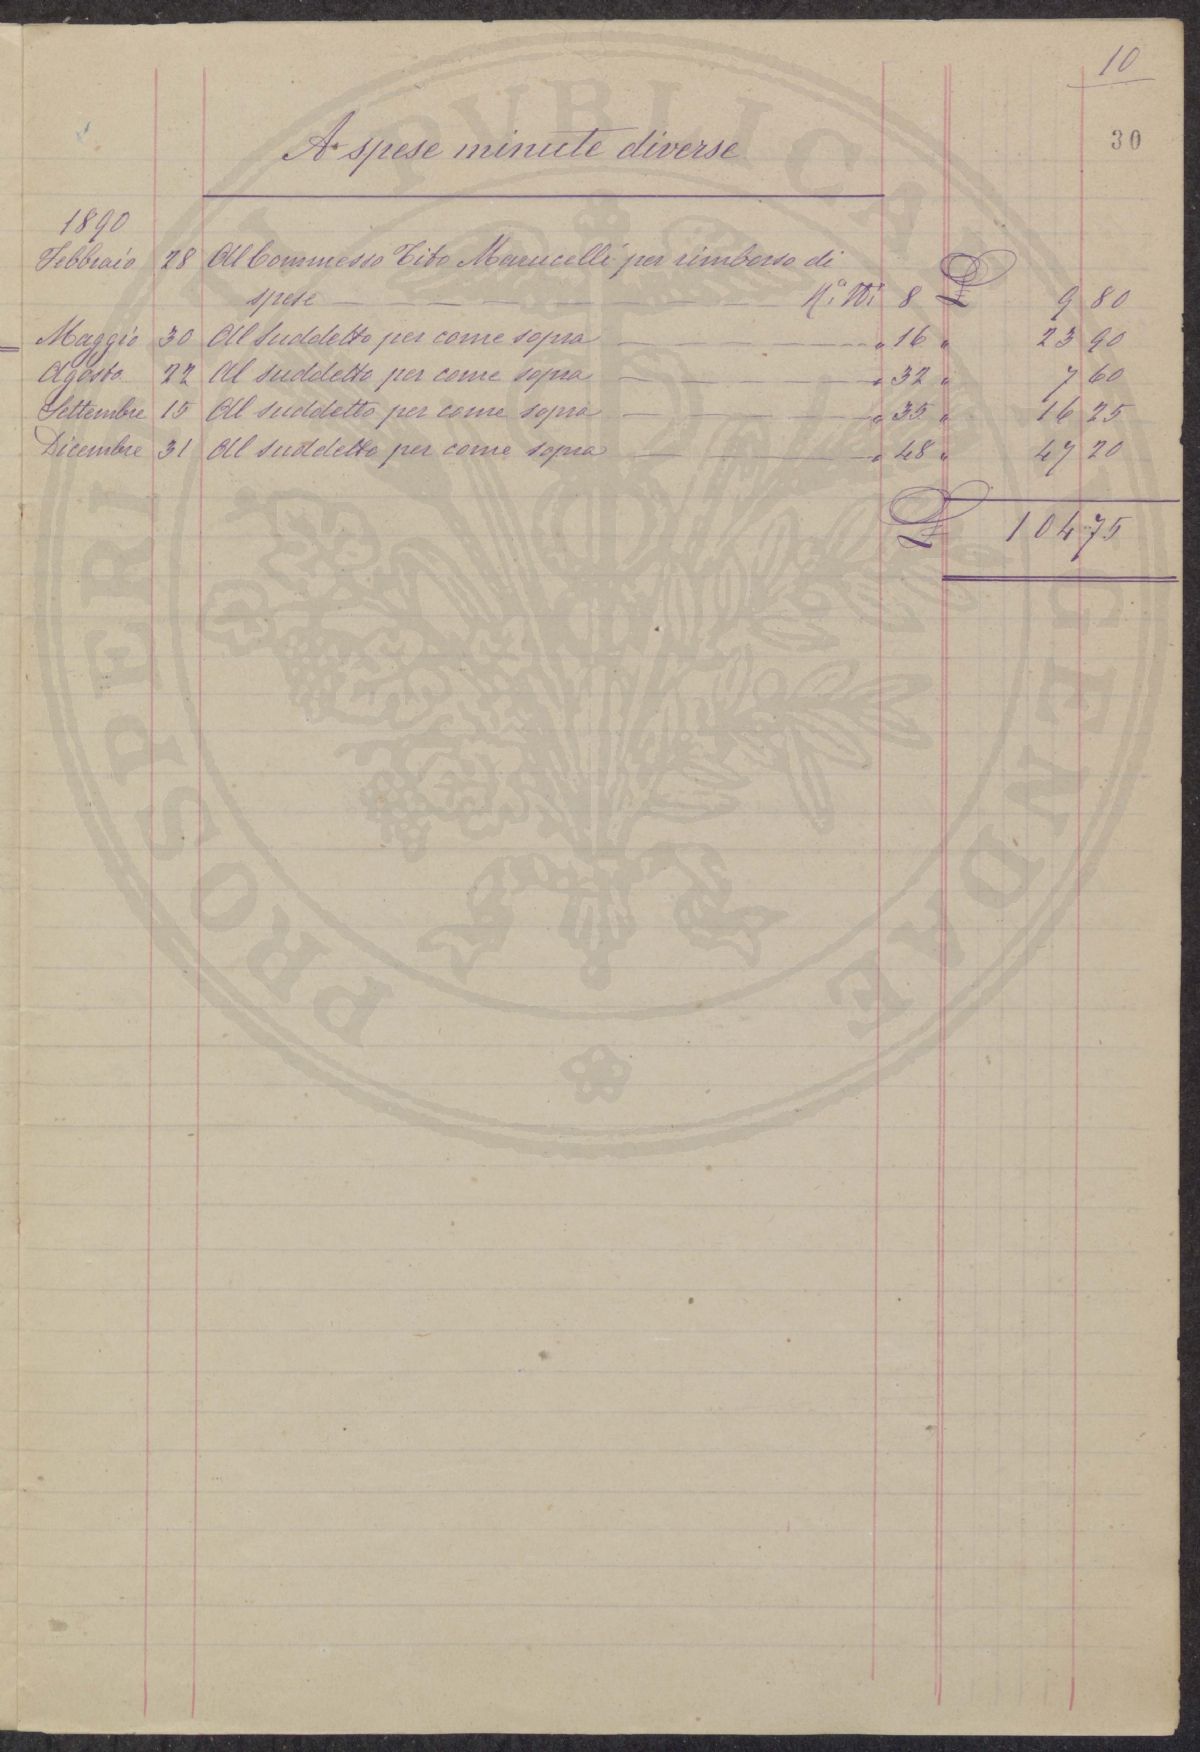 10
30
A spese minute diverse
1890
Febbraio 28 Al Commesso Tito Marucelli per rimborso di
spese 8 £ 9 80
Maggio 30 Al Suddetto per come sopra " 16 " 23 90
Agosto 22 Al suddetto per come sopra " 32 " 7 60
Settembre 15 Al suddetto per come sopra " 35 " 16 25
Dicembre 31 Al suddetto per come sopra " 48 " 47 20
£ 104 75
PROSPERITATI PVBLICAE AVGENDAE